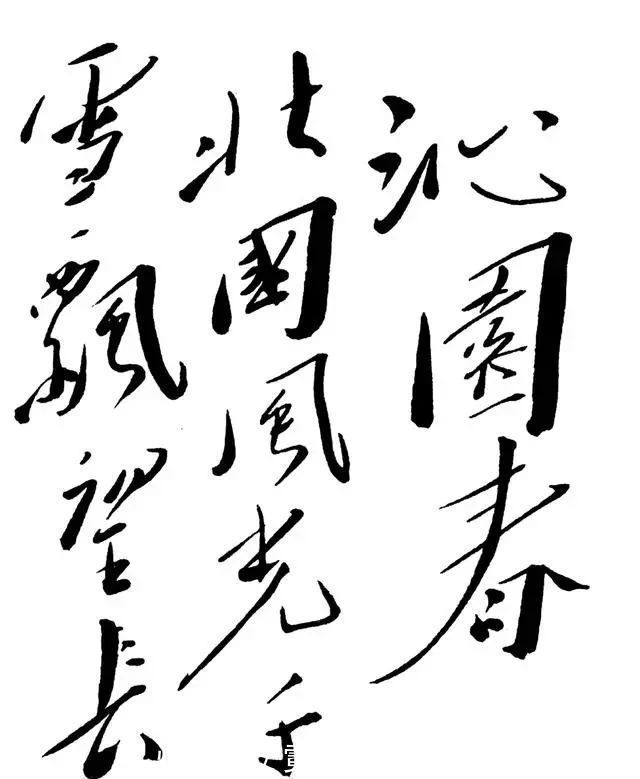 沁園春
北國風光千
雪飄望長